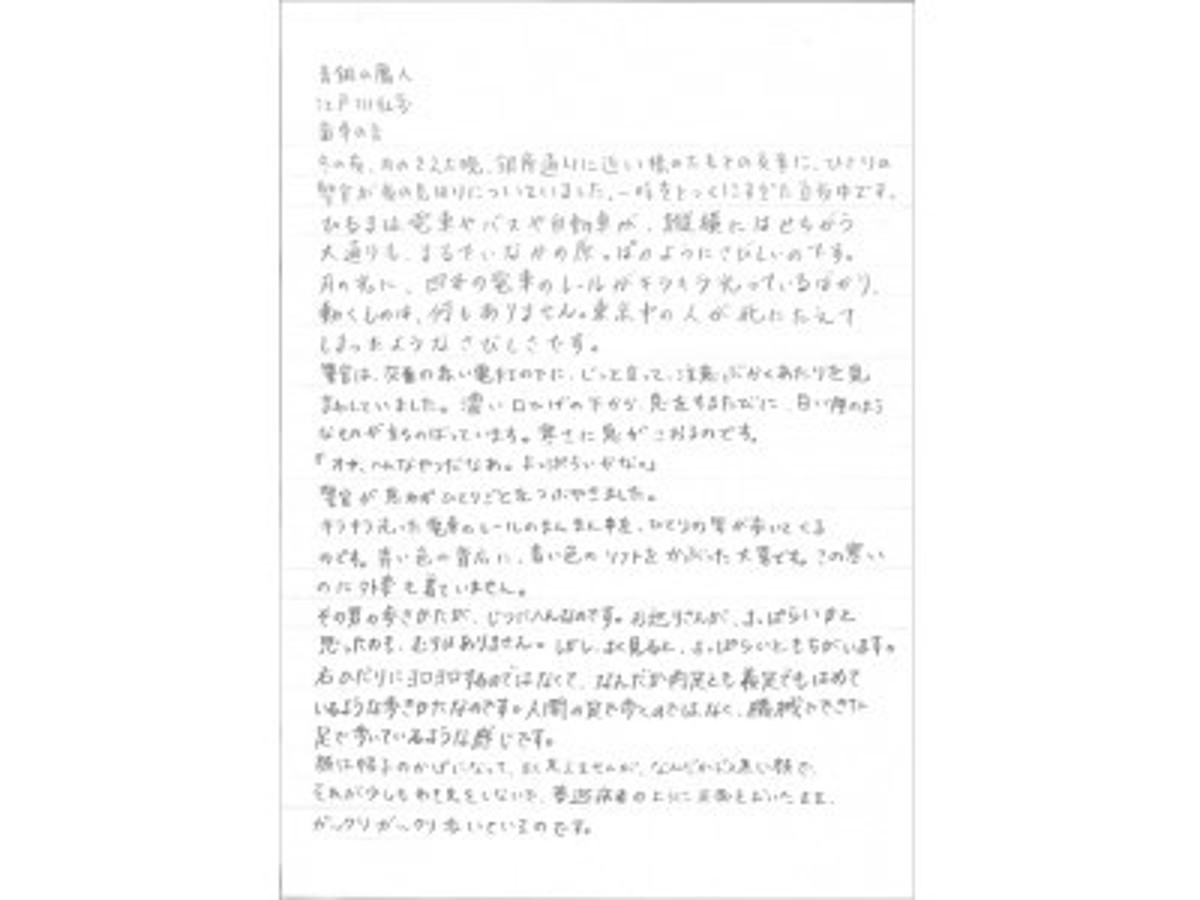 青銅の魔人
江戸川乱歩
歯車の音
冬の夜、月のさえた晩、銀座通りに近い橋のたもとの交番に、ひとりの
警官が夜の見はりについていました。一時をとっくにすぎた真夜中です。
ひるまは電車やバスや自動車が、縦横にはせちがう
大通りも、まるでいなかの原っぱのようにさびしいのです。
月の光に、四本の電車のレールがキラキラ光っているばかり、
動くものは、何もありません。東京中の人が死にたえて
しまったようなさびしさです。
警官は、交番の赤い電灯の下に、じっと立って、注意ぶかくあたりを見
まわしていました。濃い口ひげの下から、息をするたびに、白い煙のよう
なものが立ちのぼっています。寒さに息がこおるのです。
『オヤ、へんなやつだなあ。よっぱらいかな。』
警官が思わずひとりごとをつぶやきました。
キラキラ光った電車のレールのまんまん中を、ひとりの男が歩いてくる
のです。青い色の背広に、青い色のソフトをかぶった大男です。この寒い
のに外套も着ていません。
その男の歩きかたが、じつにへんなのです。お巡りさんが、よっぱらいかと
思ったのも、むりはありません。しかし、よく見ると、よっぱらいともちがいます。
右ひだりにヨロヨロするのではなくて、なんだか両足とも義足でもはめて
いるような歩きかたなのです。人間の足で歩くのではなく、機械でできた
足で歩いているような感じです。
顔は帽子のかげになって、よく見えませんが、なんだかどす黒い顔で、
それが少しもわき見をしないで、夢遊病者のように正面をむいたまま、
ガックリガックリ歩いているのです。